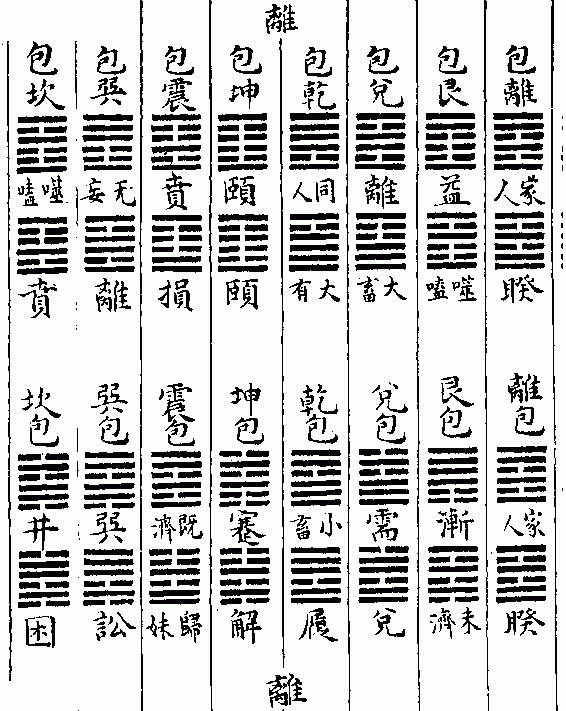 離
包離 家人 睽
包艮 益 噬嗑
包兌 離 大畜
包乾 同人 大有
包坤 頤 頤
包震 賁 損
包巽 无妄 離
包坎 噬嗑 賁
離包 家人 睽
艮包 漸 未濟
兌包 需 兌
乾包 小畜 履
坤包 蹇 解
震包 既濟 歸妹
巽包 巽 訟
坎包 井 困
離